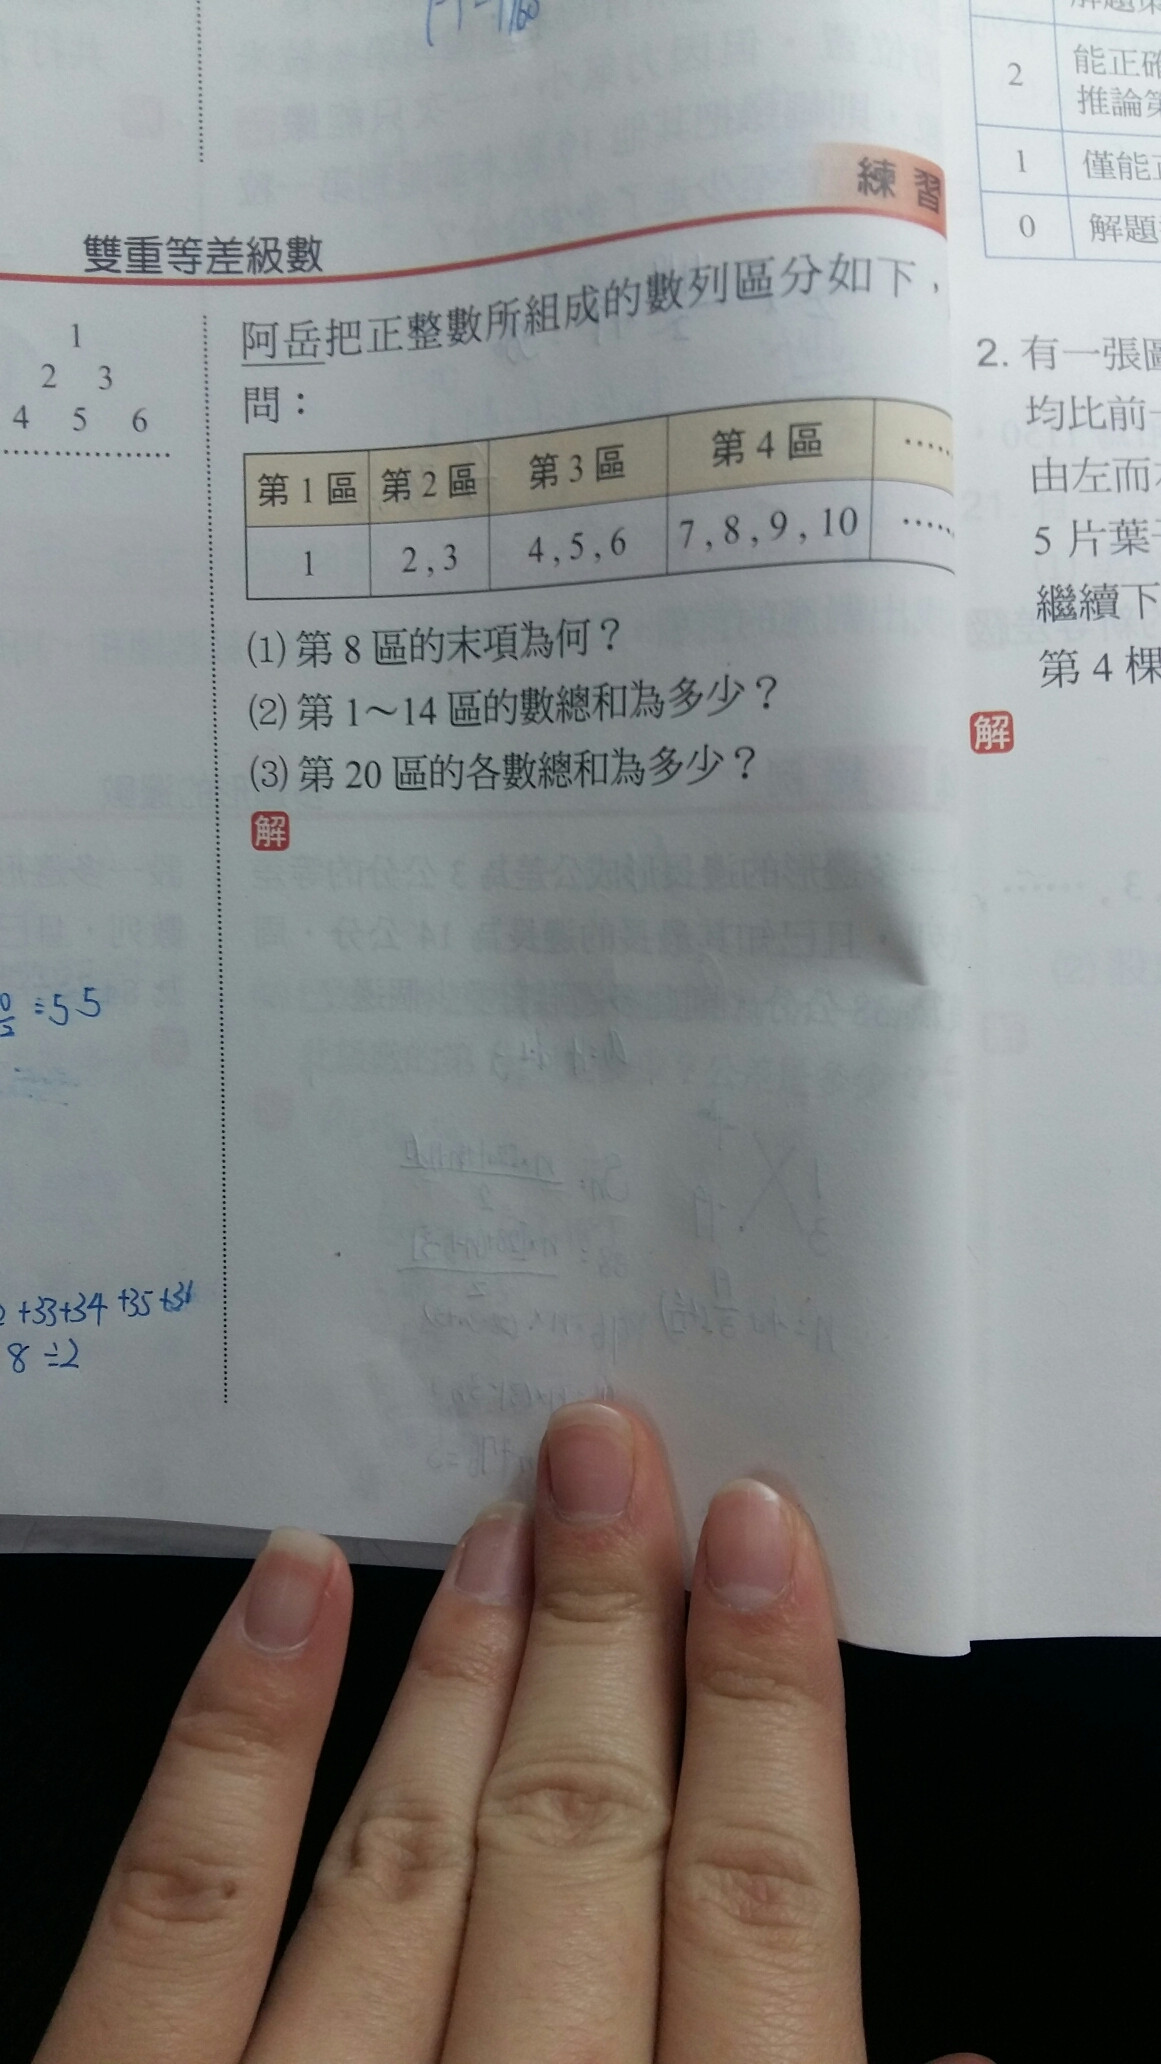 練習
雙重等差級數
1
2 3
4 5 6
阿岳把正整數所組成的數列區分如下，
問：
第1區 第2區 第3區 第4區 ……
1 2,3 4,5,6 7,8,9,10 ……
(1) 第 8 區的末項為何？
(2) 第 1～14 區的數總和為多少？
(3) 第 20 區的各數總和為多少？
解
=55
+33+34+35+36
8÷2
2 能正確
推論第
1 僅能正
0 解題
2. 有一張圖
均比前一
由左而右
5 片葉子
繼續下
第 4 棵
解